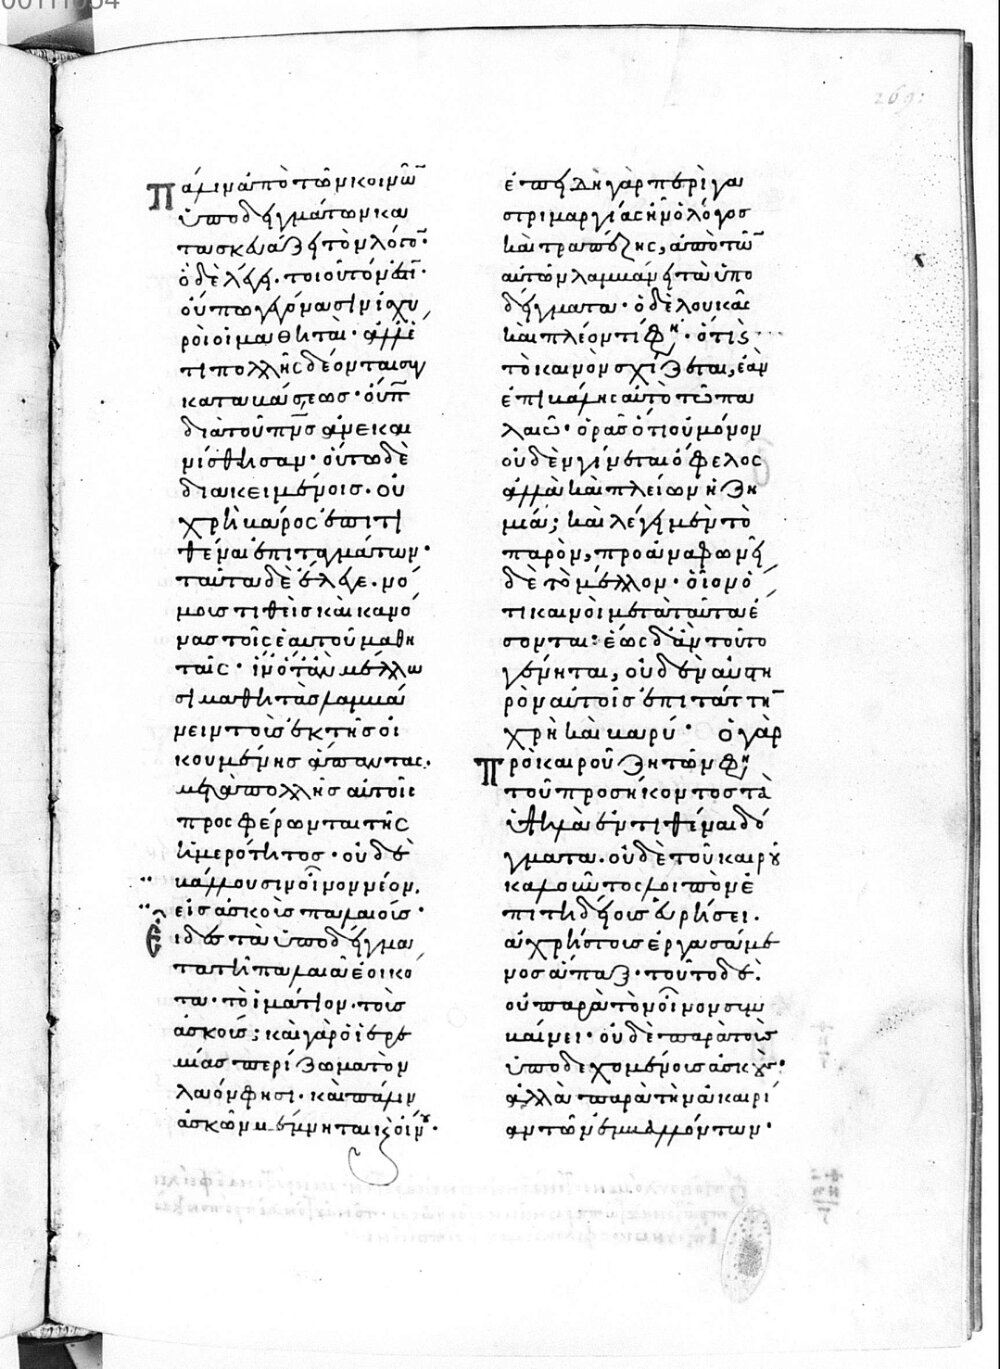 269
Πάλιν ἀπὸ τῶν κοινῶ
ὑποδειγμάτων κα
τασκευάζει τὸν λόγο·
ὁ δὲ λέγει· τοιοῦτόν ἐστι·
οὔπω γεγόνασιν ἰσχυ
ροὶ οἱ μαθηταὶ· ἀλλ' ἔ
τι πολλῆς δέονται συγ
καταβάσεως· οὔπ
διὰ τοῦ πνς ἀνεκαι
νίσθησαν· οὕτω δὲ
διακειμένοις· οὐ
χρὴ βάρος ἐπιτι
θέναι ἐπιταγμάτων·
ταῦτα δὲ ἔλεγε· νό
μους τιθεὶς καὶ κανό
νας τοῖς ἑαυτοῦ μαθη
ταῖς· ἵν' ὅταν μέλλω
σι μαθητὰς λαμβά
νειν τοὺς ἐκ τῆς οἰ
κουμένης ἅπαντας·
μετὰ πολλῆς αὐτοῖς
προσφέρωνται τῆς
ἡμερότητος· οὐδὲ
βάλλουσιν οἶνον νέον,
εἰς ἀσκοὺς παλαιούς·
Εἶδες τὰ ὑποδείγμα
τα τῇ παλαιᾷ ἐοικό
τα· τὸ ἱμάτιον· τοὺς
ἀσκούς; καὶ γὰρ ὁ ἱερε
μίας περίζωμα τὸν
λαόν φησι· καὶ πάλιν
ἀσκῶν μέμνηται καὶ οἴνου·
ἐπειδὴ γὰρ περὶ γα
στριμαργίας ἦν ὁ λόγος
καὶ τραπέζης, ἀπὸ τῶ
αὐτῶν λαμβάνει τὰ ὑπο
δείγματα· ὁ δὲ λουκᾶς
καὶ πλέον τι φη· ὅτι
τὸ καινὸν σχίζεται, ἐὰν
ἐπιβάλῃς αὐτὸ τῷ πα
λαιῷ· ὁρᾶς ὅτι οὐ μόνον
οὐδὲν γίνεται ὄφελος
ἀλλὰ καὶ πλείων ἡ ζη
μία; καὶ λέγει μὲν τὸ
παρὸν, προαναφωνεῖ
δὲ τὸ μέλλον· οἷον ὅ
τι καινοὶ μετὰ ταῦτα ἔ
σονται· ἕως δ' ἂν τοῦτο
γένηται, οὐδὲν αὐστη
ρὸν αὐτοῖς ἐπιτάττειν
χρὴ καὶ βαρύ· ὁ γὰρ
πρὸ καιροῦ ζητῶν φη
τοῦ προσήκοντος τὰ
ὑψηλὰ ἐντιθέναι δό
γματα· οὐδὲ τοῦ καιροῦ
καλοῦντος λοιπὸν ἐ
πιτηδείους εὑρήσει·
ἀχρήστους ἐργασάμε
νος ἅπαξ· τοῦτο δὲ·
οὐ παρὰ τὸν οἶνον συμ
βαίνει· οὐδὲ παρὰ τοὺς
ὑποδεχομένους ἀσκούς·
ἀλλὰ παρὰ τὴν ἀκαιρί
αν τῶν ἐμβαλλόντων·